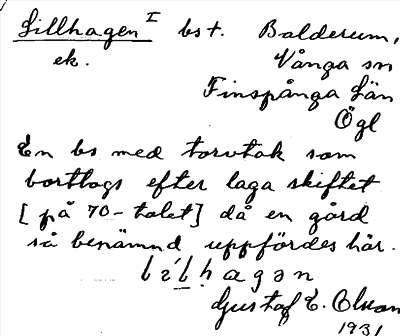 Lillhagen I bst. Balderum,
ek. Vånga sn
Finspånga Län
Ögl
En bs med torvtak som
borttogs efter laga skiftet
[på 70-talet] då en gård
så benämnd uppfördes här.
Gustaf E. Olson
1931